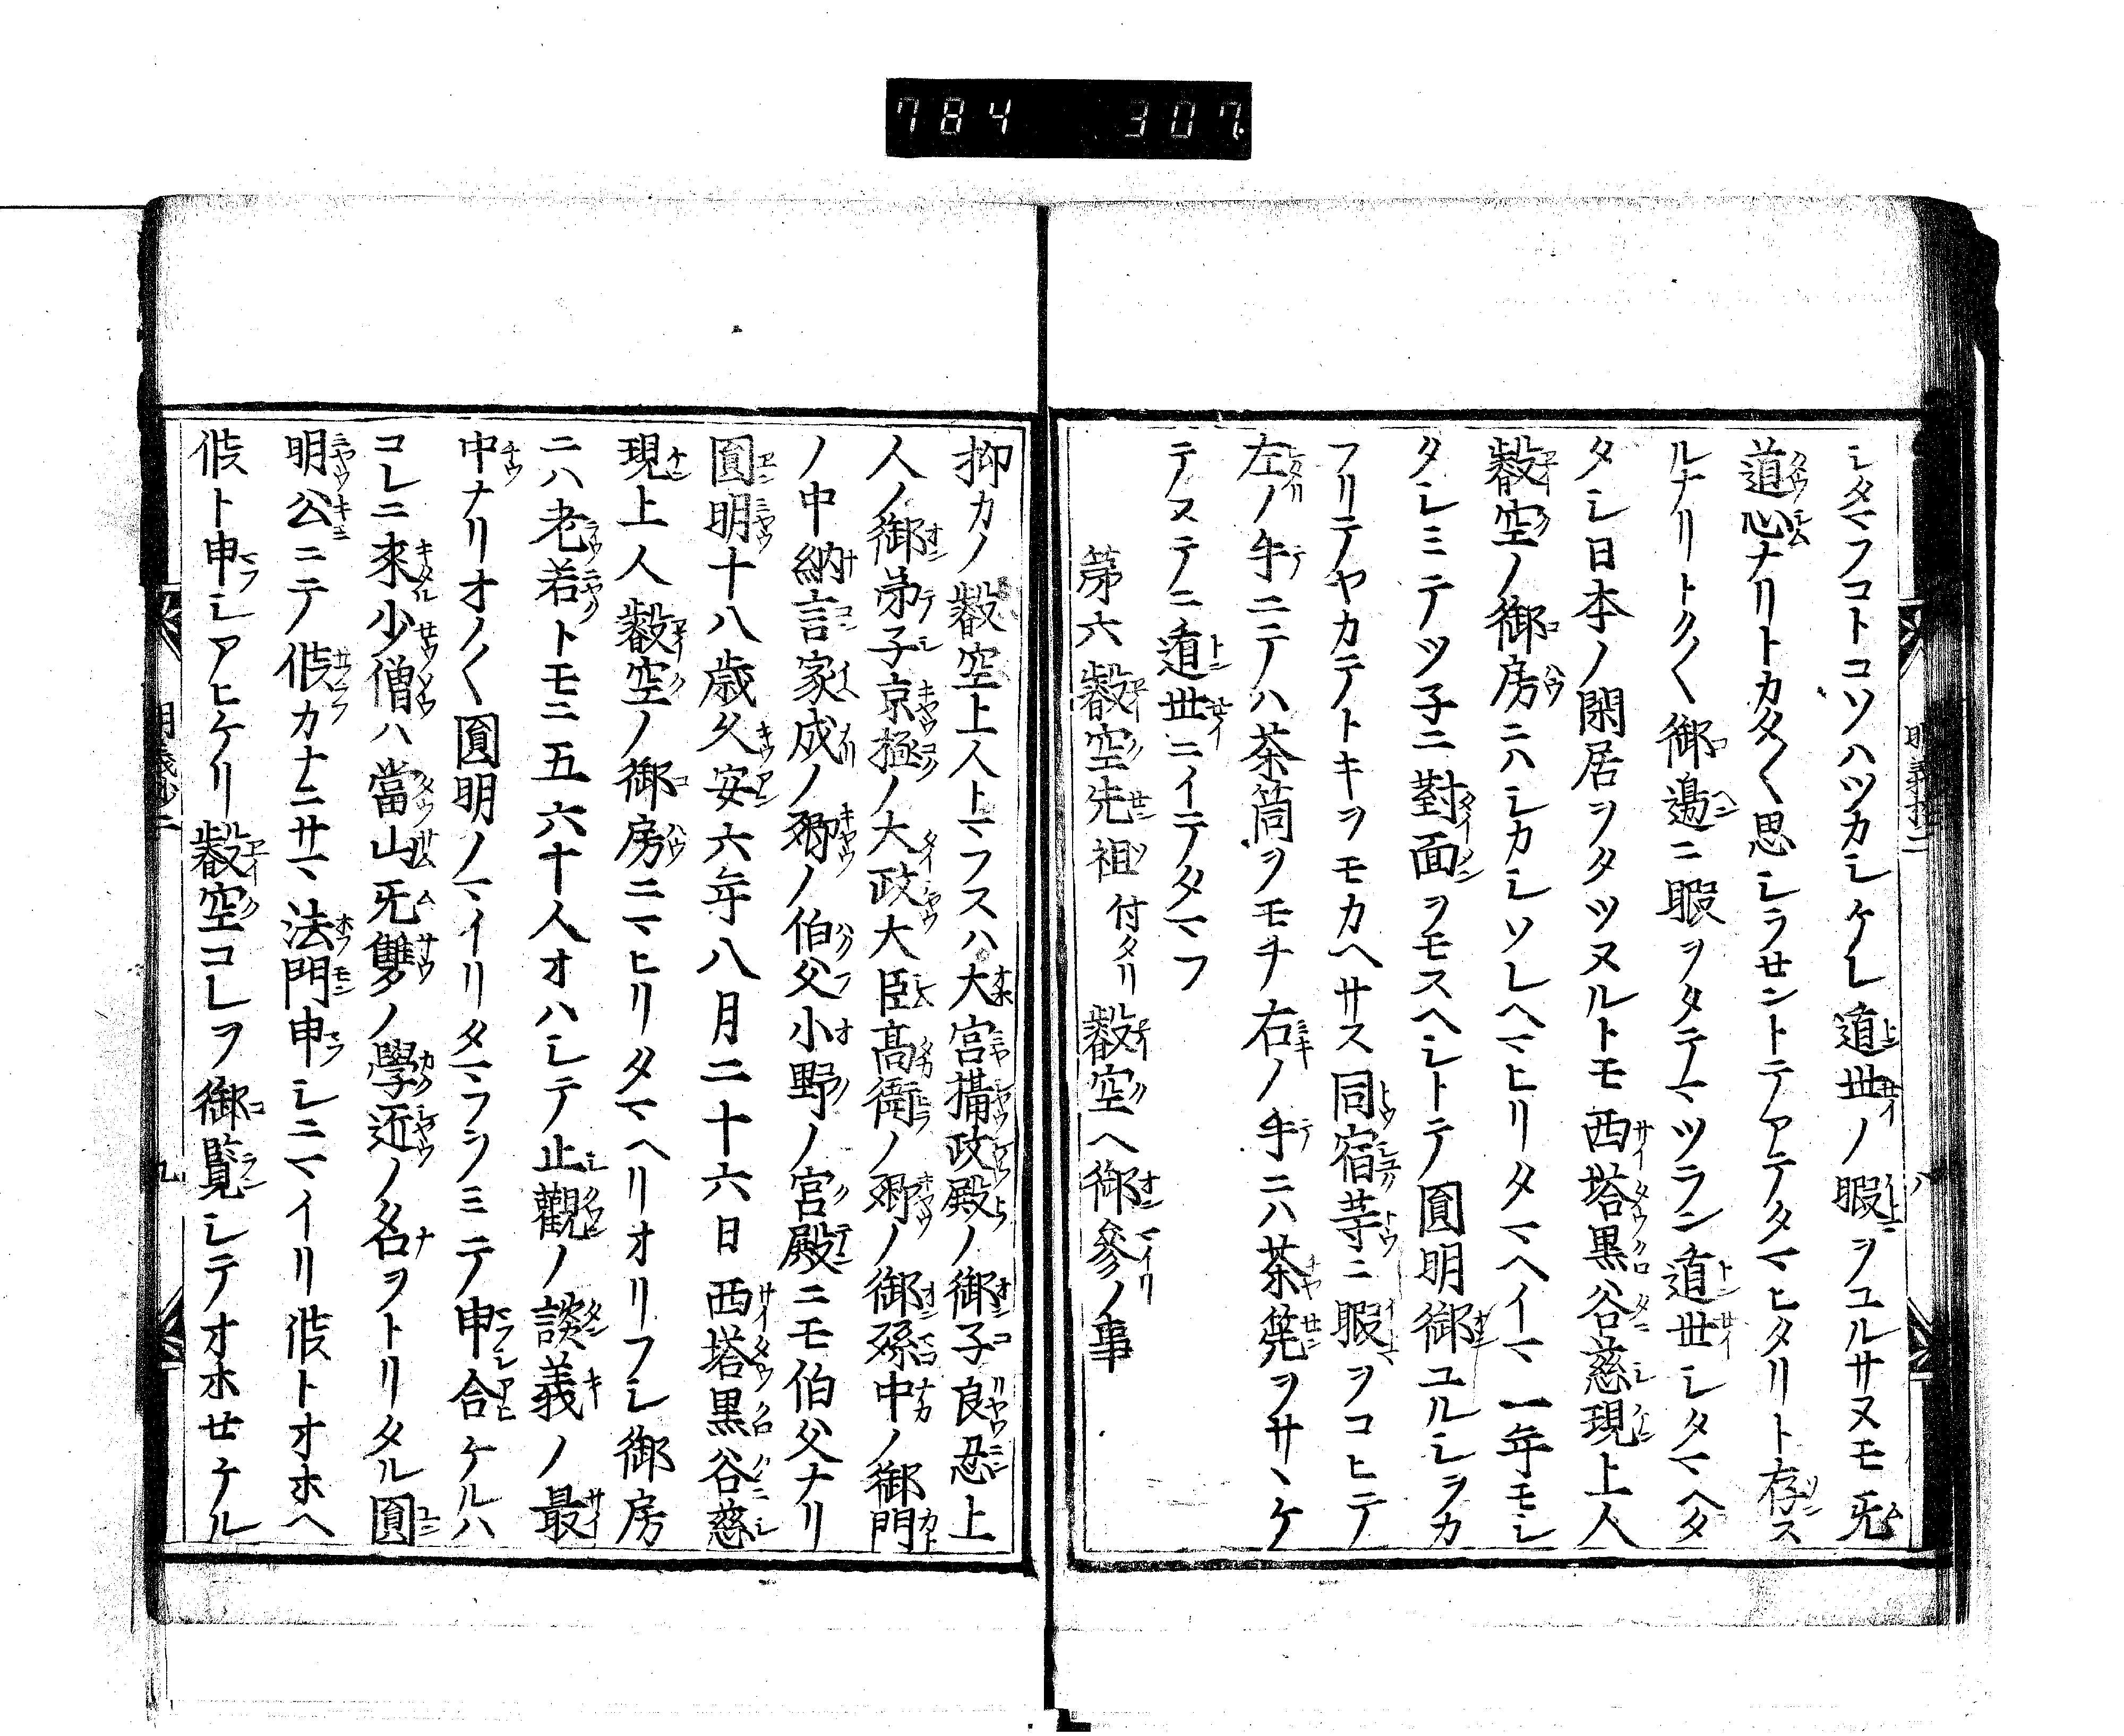 784 307
シタマフコトコソハツカシケレ遁世ノ暇ヲユルサヌモ无
道心ナリトカタ〱思シラセントテアテタマヒタリト存ス
ルナリトク〱御邊ニ暇ヲタテマツラン遁世シタマヘタ
タシ日本ノ閑居ヲタツヌルトモ西塔黒谷慈現上人
叡空ノ御房ニハシカシソレヘマヒリタマヘイマ一年モシ
タシミテツ子ニ對面ヲモスヘシトテ圓明御ユルシヲカ
フリテヤカテノトキヲモカヘサス同宿等ニ暇ヲコヒテ
左ノ手ニテハ茶筒ヲモチ右ノ手ニハ茶筅ヲサヽケ
テノステニ遁世ニイテタマフ
第六叡空先祖付タリ叡空へ御參ノ事
抑カノ叡空上人トマフスハ大宮攝政殿ノ御子良忍上
人ノ御弟子京極ノ大政大臣髙衞ノ卿ノ御孫中ノ御門
ノ中納言家成ノ卿ノ伯父小野ノ宮殿ニモ伯父ナリ
圓明十八歳久安六年八月二十六日西塔黒谷慈
現上人叡空ノ御房ニマヒリタマヘリオリフシ御房
ニハ老若トモニ五六十人オハシテ止觀ノ談義ノ最
中ナリオノ〱圓明ノマイリタマフヲミテ申合ケルハ
コレニ來少僧ハ當山无雙ノ學近ノ名ヲトリタル圓
明公ニテ候カナニサマ法門申シニマイリ候トオホヘ
候ト申シアヒケリ叡空コレヲ御覧シテオホセケル